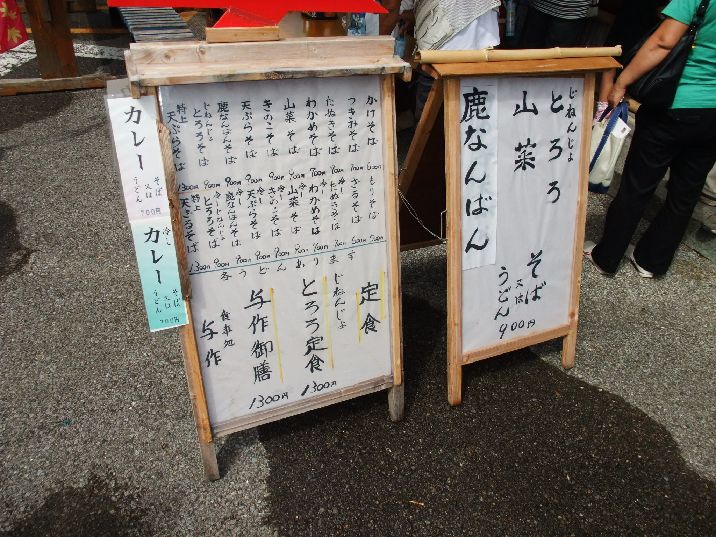 かけそば 600円
つきみそば 700円
たぬきそば 700円
わかめそば 800円
山菜そば 900円
きのこそば 900円
天ぷらそば 900円
鹿なんばんそば 900円
じねんじょ
とろろそば 900円
特上
天ぷらそば 1300円
もりそば
ざるそば
冷し
たぬきそば
冷し
わかめそば
冷し
山菜そば
冷し
きのこそば
冷し
天ぷらそば
冷し
鹿なんばんそば
冷しじねんじょ
とろろそば
冷し特上
天ぷらそば 1300円
各うどんあります
定食
じねんじょ
とろろ定食 1300円
与作御膳 1300円
食事処
与作
カレー そば
又は
うどん
700円
冷し
カレー そば
又は
うどん
700円
じねんじょ
とろろ
山菜
鹿なんばん
そば
又は
うどん
900円